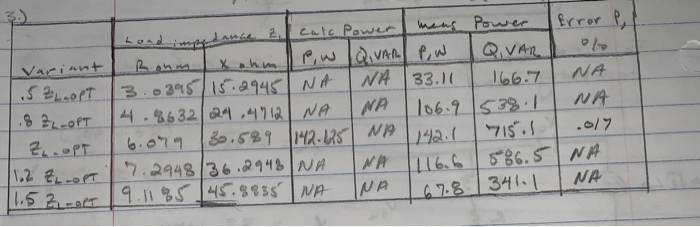 3.)
Load impedance Z, Calc Power meas Power Error P,
Variant R ohm X ohm P,W Q,VAR P,W Q,VAR %
.5 ZL-OPT 3.0395 15.2945 NA NA 33.11 166.7 NA
.8 ZL-OPT 4.8632 24.4712 NA NA 106.9 538.1 NA
ZL-OPT 6.079 30.589 142.125 NA 142.1 715.1 .017
1.2 ZL-OPT 7.2948 36.2948 NA NA 116.6 586.5 NA
1.5 ZL-OPT 9.1185 45.8835 NA NA 67.8 341.1 NA